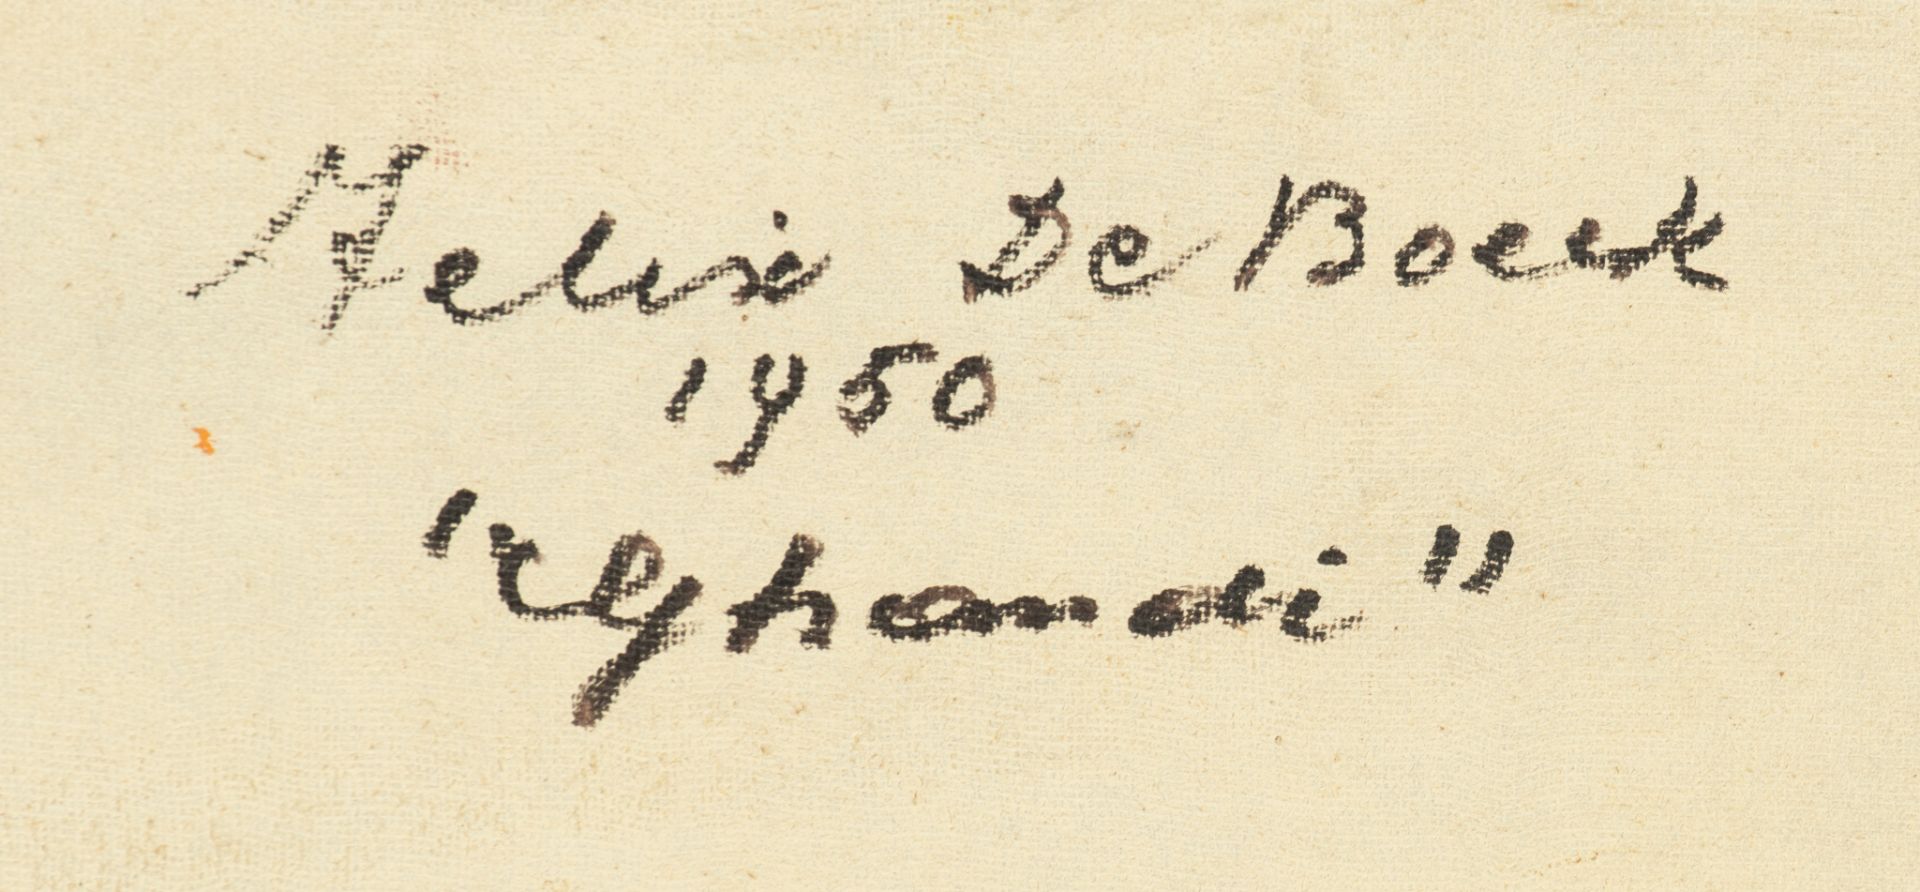 Felix De Boeck
1950
"Ghandi"